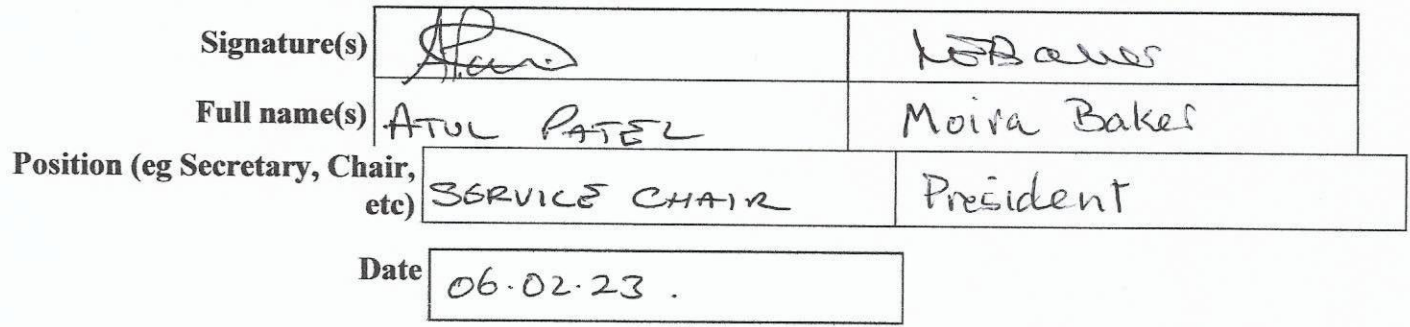 Signature(s) MEBaker
Full name(s) ATUL PATEL Moira Baker
Position (eg Secretary, Chair,
etc) SERVICE CHAIR President
Date 06.02.23.